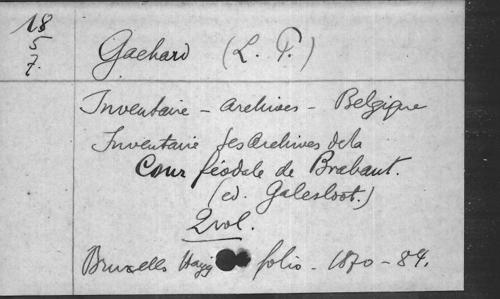 18
5
7.
Gachard (L. P.)
Inventaire - archives - Belgique
Inventaire des archives de la
Cour féodale de Brabant.
(ed. Galesloot.)
2 vol.
Bruxelles Hayez folio - 1870 - 84.